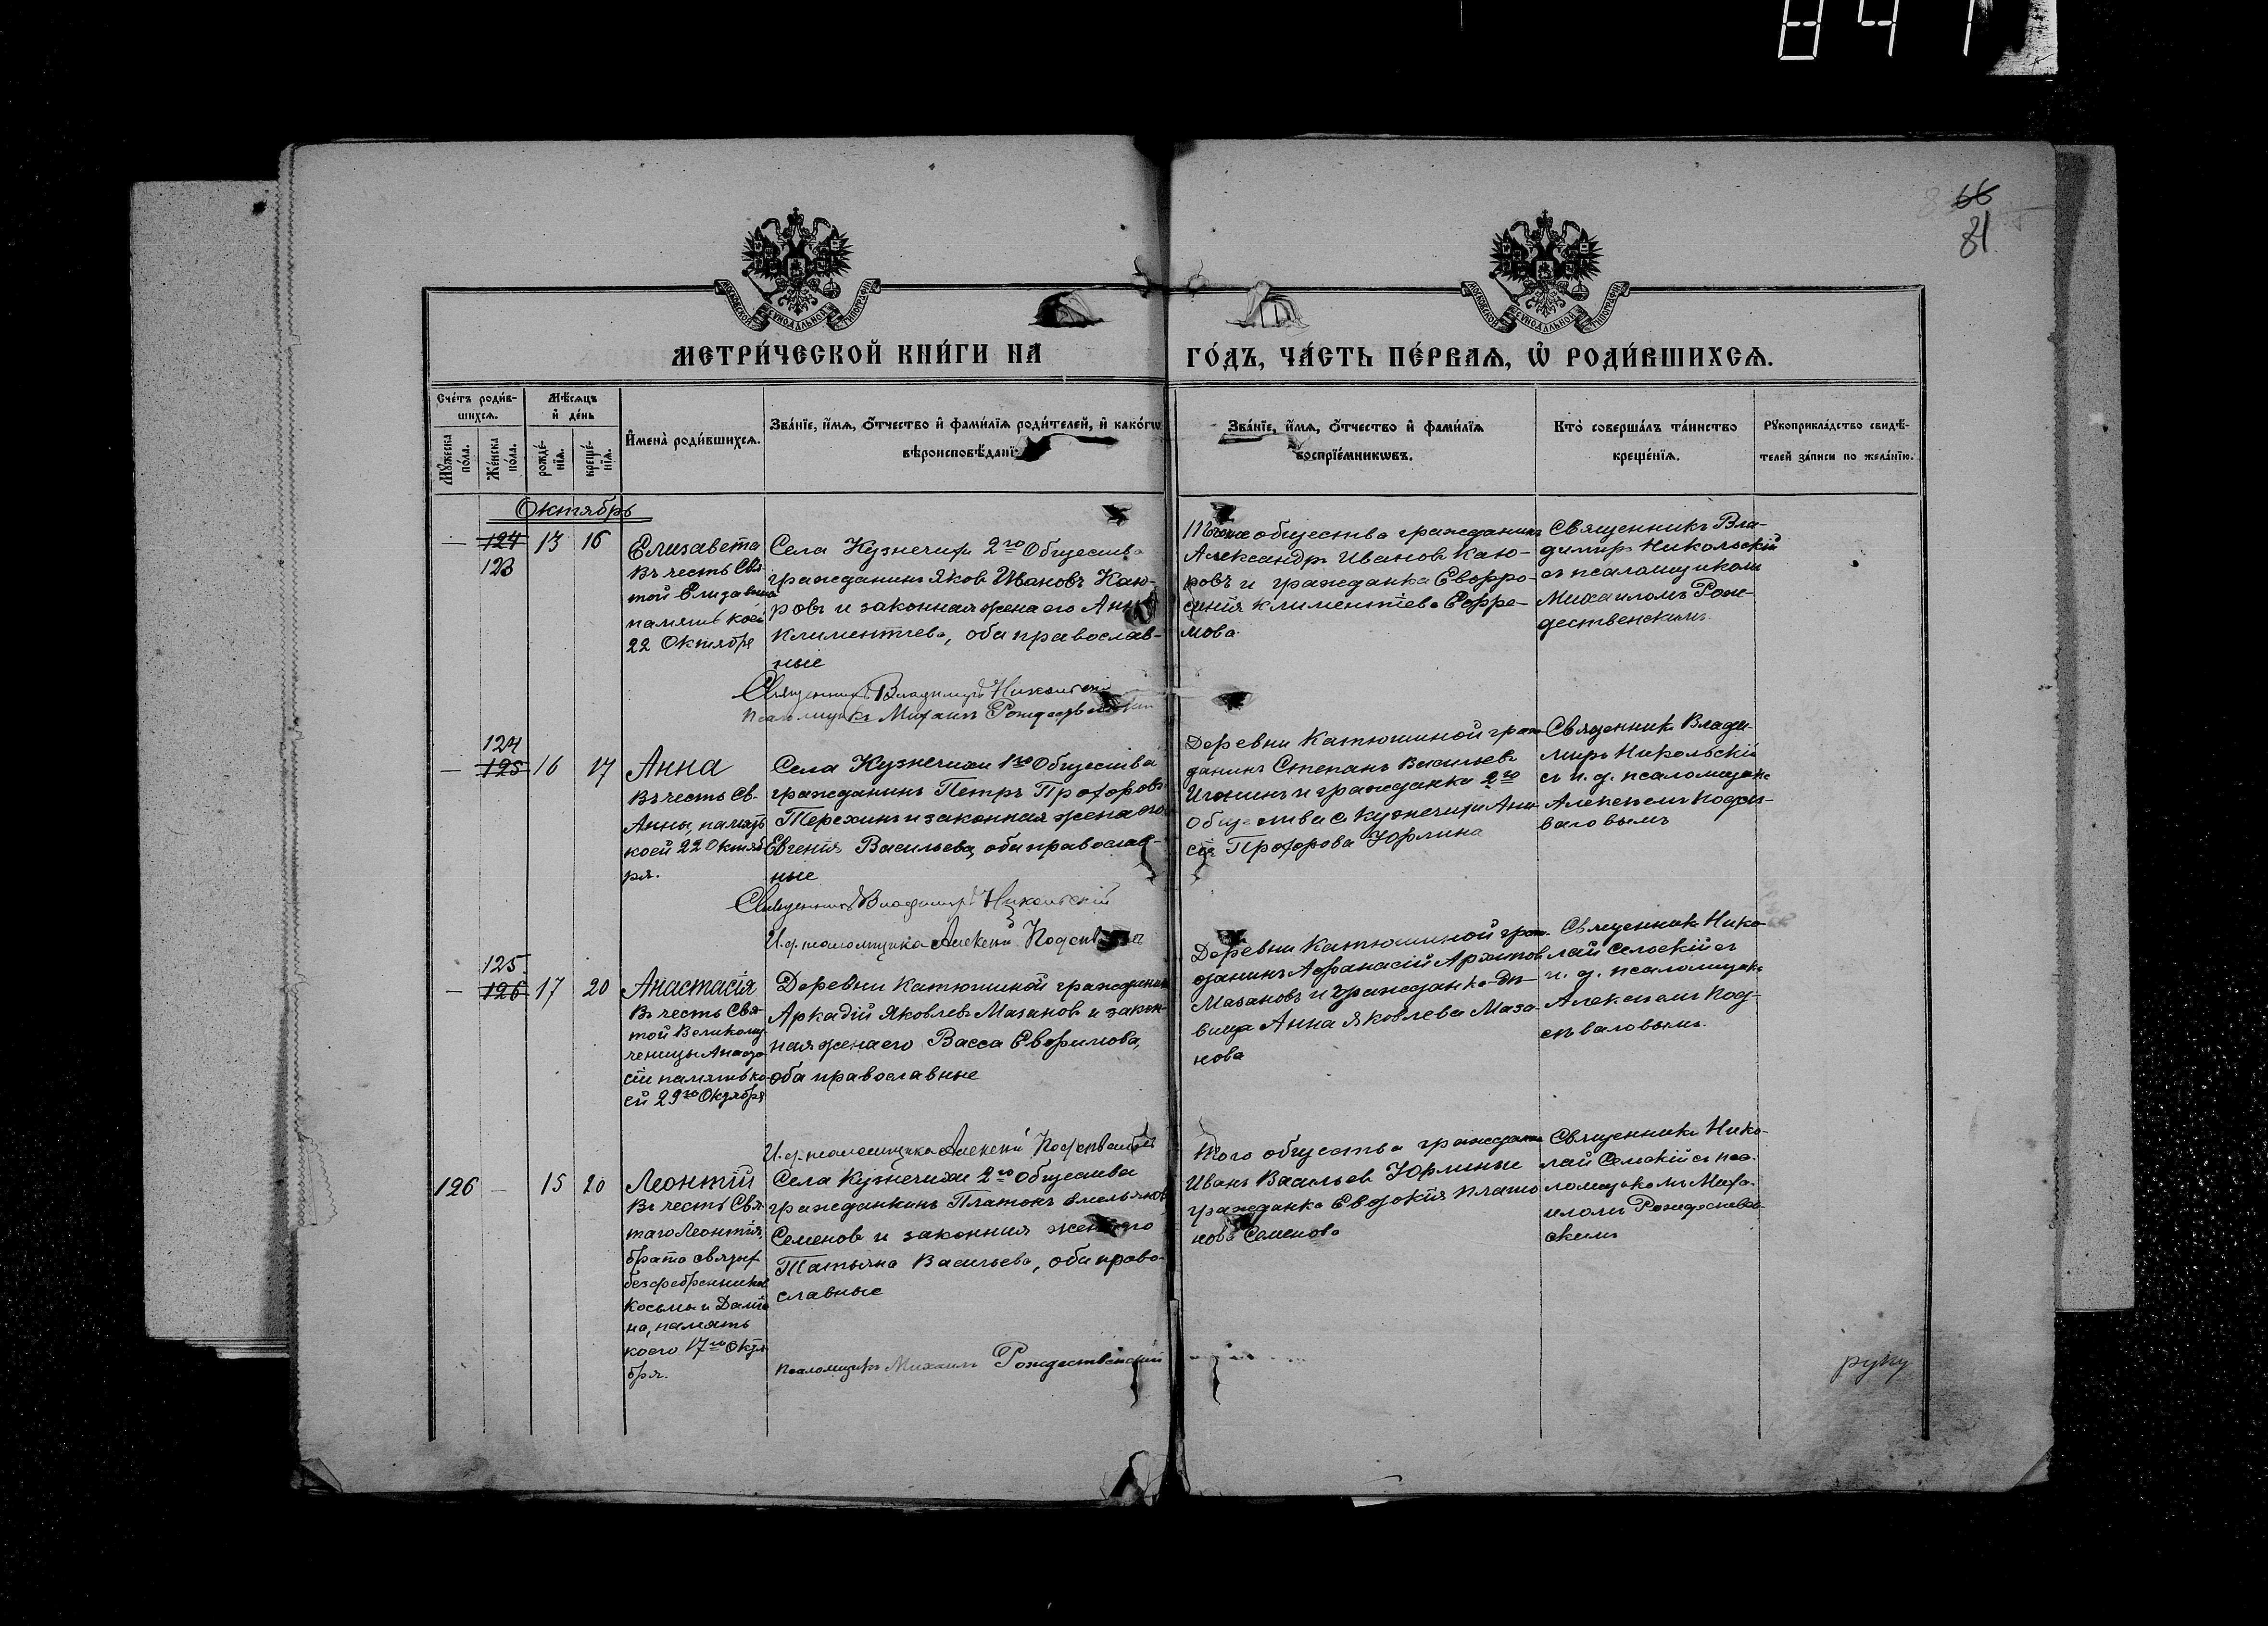 841
66
81
МОСКОВСКОЙ СУНОДАЛЬНОЙ ТИПОГРАФІИ
МОСКОВСКОЙ СУНОДАЛЬНОЙ ТИПОГРАФІИ
МЕТРИ́ЧЕСКОЙ КНИ́ГИ НА
ГО́ДЪ, ЧА́СТЬ ПЕ́РВАѦ, Ѡ РОДИ́ВШИХСѦ.
Сче́тъ роди́в-
шихсѧ.
Мѣ́сѧцъ
и де́нь
Мꙋ́жеска по́ла.
Же́нска по́ла.
рожде́-
нїѧ.
креще́-
нїѧ.
Имена̀ роди́вшихсѧ.
Зва́нїе, и́мѧ, ѻ́тчество и фами́лїѧ роди́телей, и како́гѡ
вѣроисповѣ́данї
Зва́нїе, и́мѧ, ѻ́тчество и фами́лїѧ
воспрїе́мникѡвъ.
Кто̀ соверша́лъ та́инство
креще́нїѧ.
Рꙋкоприкла́дство свидѣ́-
телей за́писи по жела́нїю.
Октябрь
— 124 13 16
123
Елизавета
Въ честь Свя-
той Елизаветы
память коей
22 Октября
Села Кузнечихи 2го Общества
гражданинъ Яковъ Ивановъ Каю-
ровъ и законная жена его Анна
Климентьева, оба православ-
ные
Священникъ Владимиръ Никольскій
Псаломщикъ Михаилъ Рождественскій
общества гражданинъ
Александръ Ивановъ Каю-
ровъ и гражданка Евфро-
синія Климентіева Ефре-
мова
Священникъ Вла-
димиръ Никольскій
съ псаломщикомъ
Михаиломъ Рож-
дественскимъ
124
— 125 16 17
Анна
Въ честь Св.
Анны, память
коей 22 Октяб-
ря.
Села Кузнечихи 1го Общества
гражданинъ Петръ Прохоровъ
Терехинъ и законная жена его
Евгенія Васильева, оба православ-
ные
Священникъ Владимиръ Никольскій
И. д. псаломщика Алексѣй
Деревни Катюшиной граж-
данинъ Степанъ Васильевъ
и гражданка 2го
Общества с. Кузнечихи Ани-
сія Прохорова Юрлина
Священникъ Влади-
миръ Никольскій
съ и. д. псаломщика
Алексѣемъ Подсѣ-
валовымъ
125.
— 126 17 20
Анастасія
Въ честь Свя-
той Великому-
ченицы Анаста-
сіи память ко-
ей 29го Октября
Деревни Катюшиной гражданинъ
Аркадій Яковлевъ Мазановъ и закон-
ная жена его Васса Евфимова,
оба православные
И. д. псаломщика Алексѣй Подсѣваловъ
Деревни Катюшиной граж-
данинъ Афанасій Архиповъ
Мазановъ и гражданка дѣ-
вица Анна Яковлева Маза-
нова
Священникъ Нико-
лай Сельскій съ
и. д. псаломщика
Алексѣемъ Под-
сѣваловымъ.
126 — 15 20
Леонтій
Въ честь Свя-
таго Леонтія,
брата святых
безсребренниковъ
Косьмы и Даміа-
на, память
коего 17го Октя-
бря.
Села Кузнечихи 2го Общества
гражданинъ Платонъ Емельяновъ
Семеновъ и законная жена его
Татьяна Васильева, оба право-
славные
Псаломщикъ Михаилъ Рождественскій
Того общества гражданинъ
Иванъ Васильевъ Юрлинъ и
гражданка Евдокія Плато-
нова Семенова
Священникъ Нико-
лай Сельскій съ пса-
ломщикомъ Миха-
иломъ Рождествен-
скимъ
руку